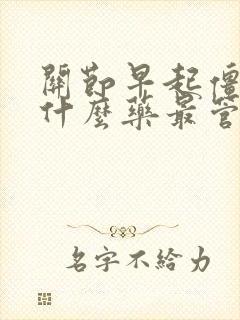 關節早起僵
什麼藥最管
名字不給力